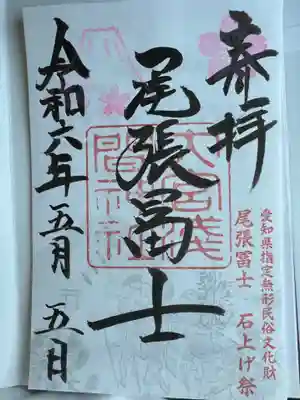 奉拝
愛知県指定無形民俗文化財
尾張冨士 石上げ祭
尾張冨士
大宮浅間神社
令和六年五月五日